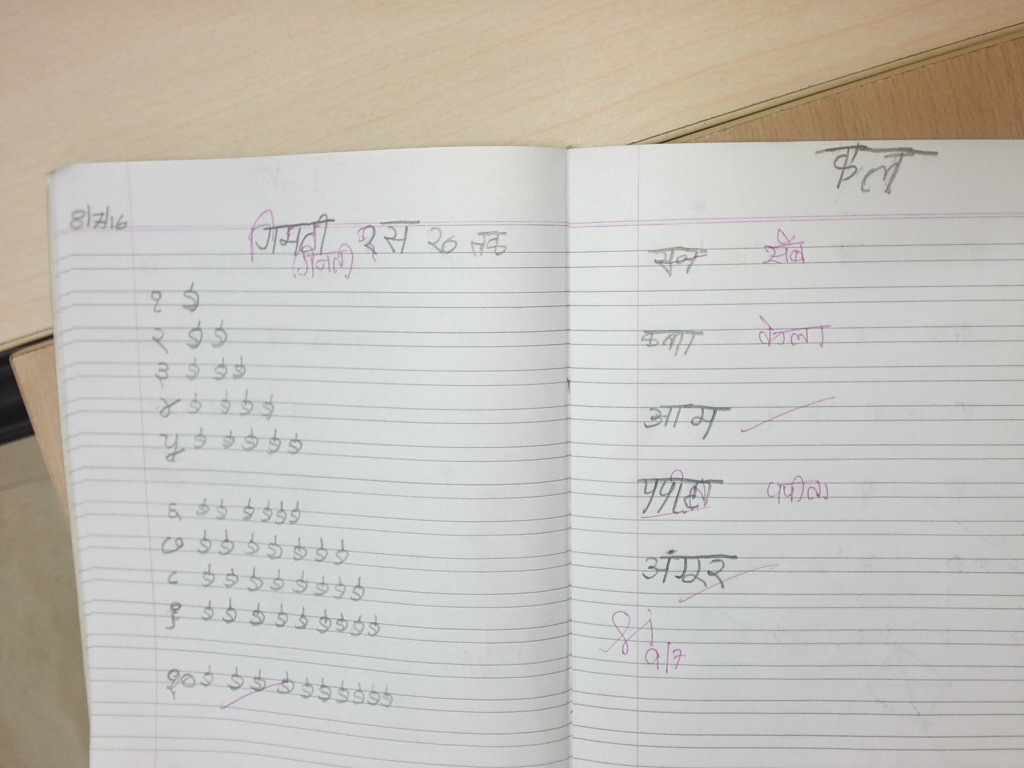 8/7/16
गिमती १ स २० तक
(गिनती)
१
२
३
४
५
६
७
८
९
१०
फल
सब सेब
केला
आम
पपीता पपीता
अंगूर
9/7